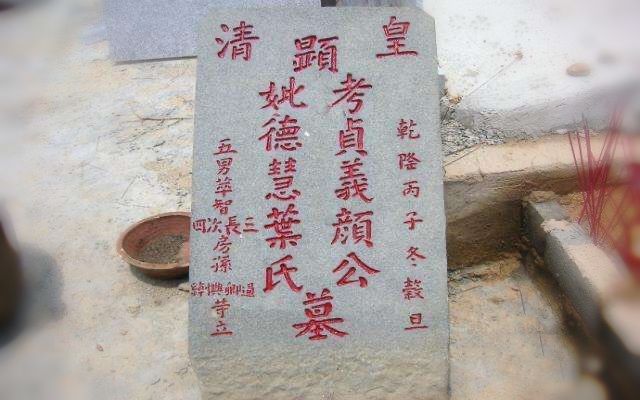 皇清
乾隆丙子冬穀旦
顯
考貞義顏公
妣德慧葉氏
墓
五男萃智
三長次四
房孫
卿興
等立